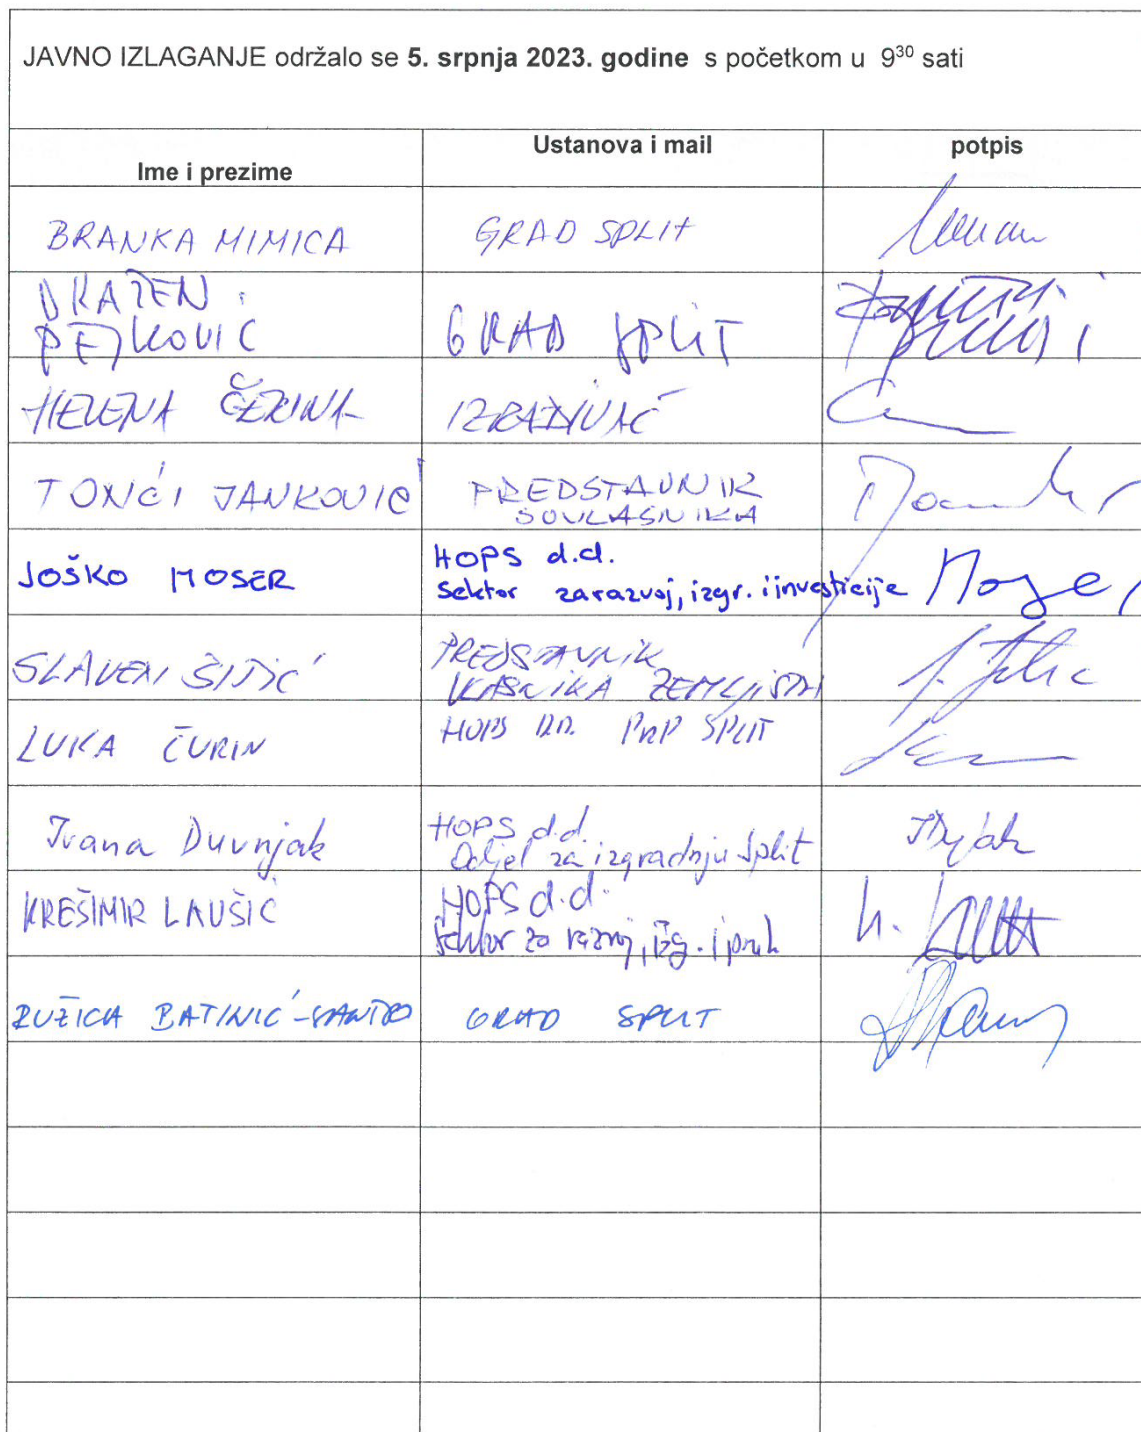 JAVNO IZLAGANJE održalo se 5. srpnja 2023. godine s početkom u 9³⁰ sati
Ime i prezime Ustanova i mail potpis
BRANKA MIMICA GRAD SPLIT
DRAŽEN
PEJKOVIĆ GRAD SPLIT
HELENA IZRAĐIVAČ
TONĆI JANKOVIĆ PREDSTAVNIK
SUVLASNIKA
JOŠKO MOSER HOPS d.d.
Sektor za razvoj, izgr. i investicije Moser
SLAVEN ŠITIĆ PREDSTAVNIK
VLASNIKA ZEMLJIŠTA
LUKA ĆURIN HOPS D.D. PrP SPLIT
Ivana Duvnjak HOPS d.d.
Odjel za izgradnju Split
KREŠIMIR LAUŠIĆ HOPS d.d.
Sektor za razvoj, izg. i
RUŽICA BATINIĆ- GRAD SPLIT